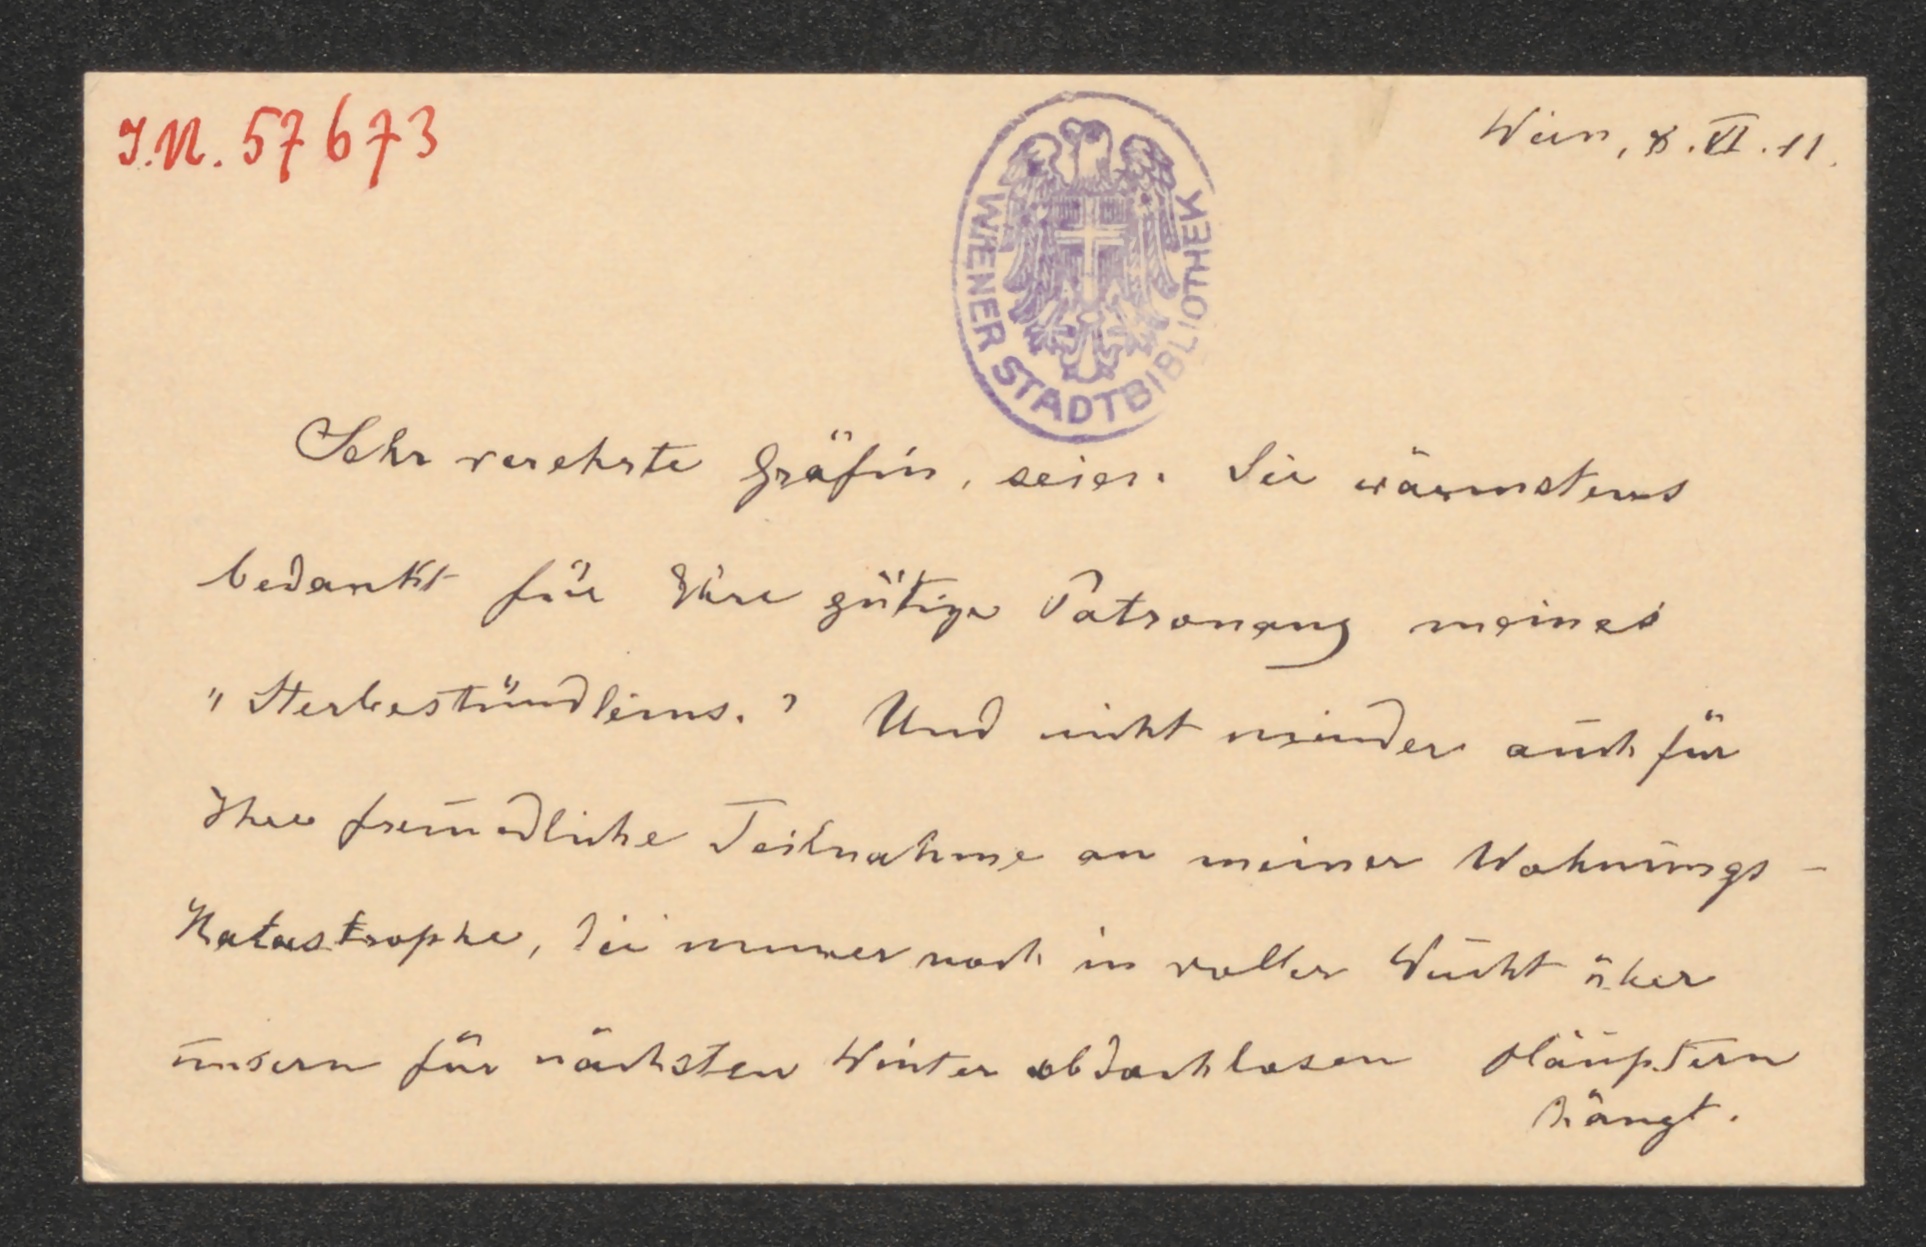 J.N. 57673
WIENER STADTBIBLIOTHEK
Wien, 8.VI.11.
Sehr verehrte Gräfin, seien Sie wärmstens
bedankt für Ihre gütige Patronanz meines
"Sterbestündleins." Und nicht minder auch für
Ihre freundliche Teilnahme an meiner Wohnungs-
Katastrophe, die immer noch in voller Wucht über
unsern für nächsten Winter obdachlosen Häuptern
hängt.